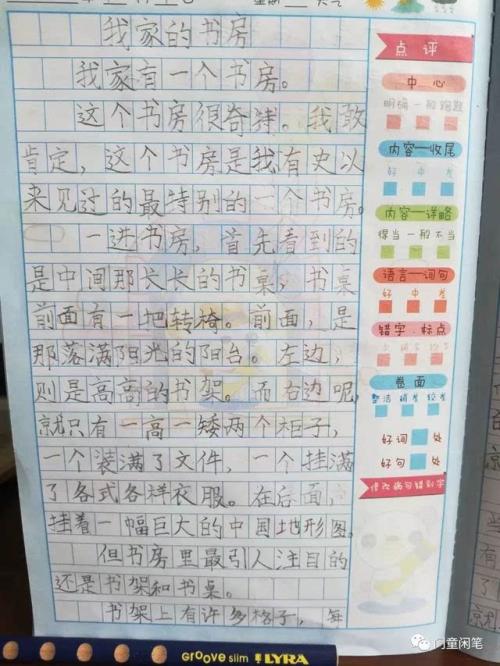 我家的书房
我家有一个书房。
这个书房很奇特。我敢
肯定，这个书房是我有史以
来见过的最特别的一个书房。
一进书房，首先看到的
是中间那长长的书桌，书桌
前面有一把转椅。前面，是
那落满阳光的阳台。左边，
则是高高的书架。而右边呢，
就只有一高一矮两个柜子，
一个装满了文件，一个挂满
了各式各样衣服。在后面，
挂着一幅巨大的中国地形图。
但书房里最引人注目的
还是书架和书桌。
书架上有许多格子，每
点评
中心
明确 一般 跑题
内容—收尾
好 中 差
内容—详略
得当 一般 不当
语言—词句
好 中 差
错字、标点
卷面
整洁 稍差 较差
好词 处
好句 处
修改病句错别字
GROOVE slim LYRA
门童闲笔